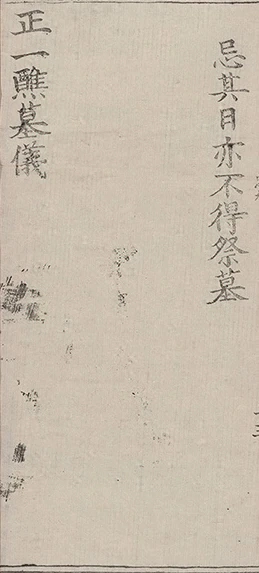 忌其日亦不得祭墓
正一醮墓儀